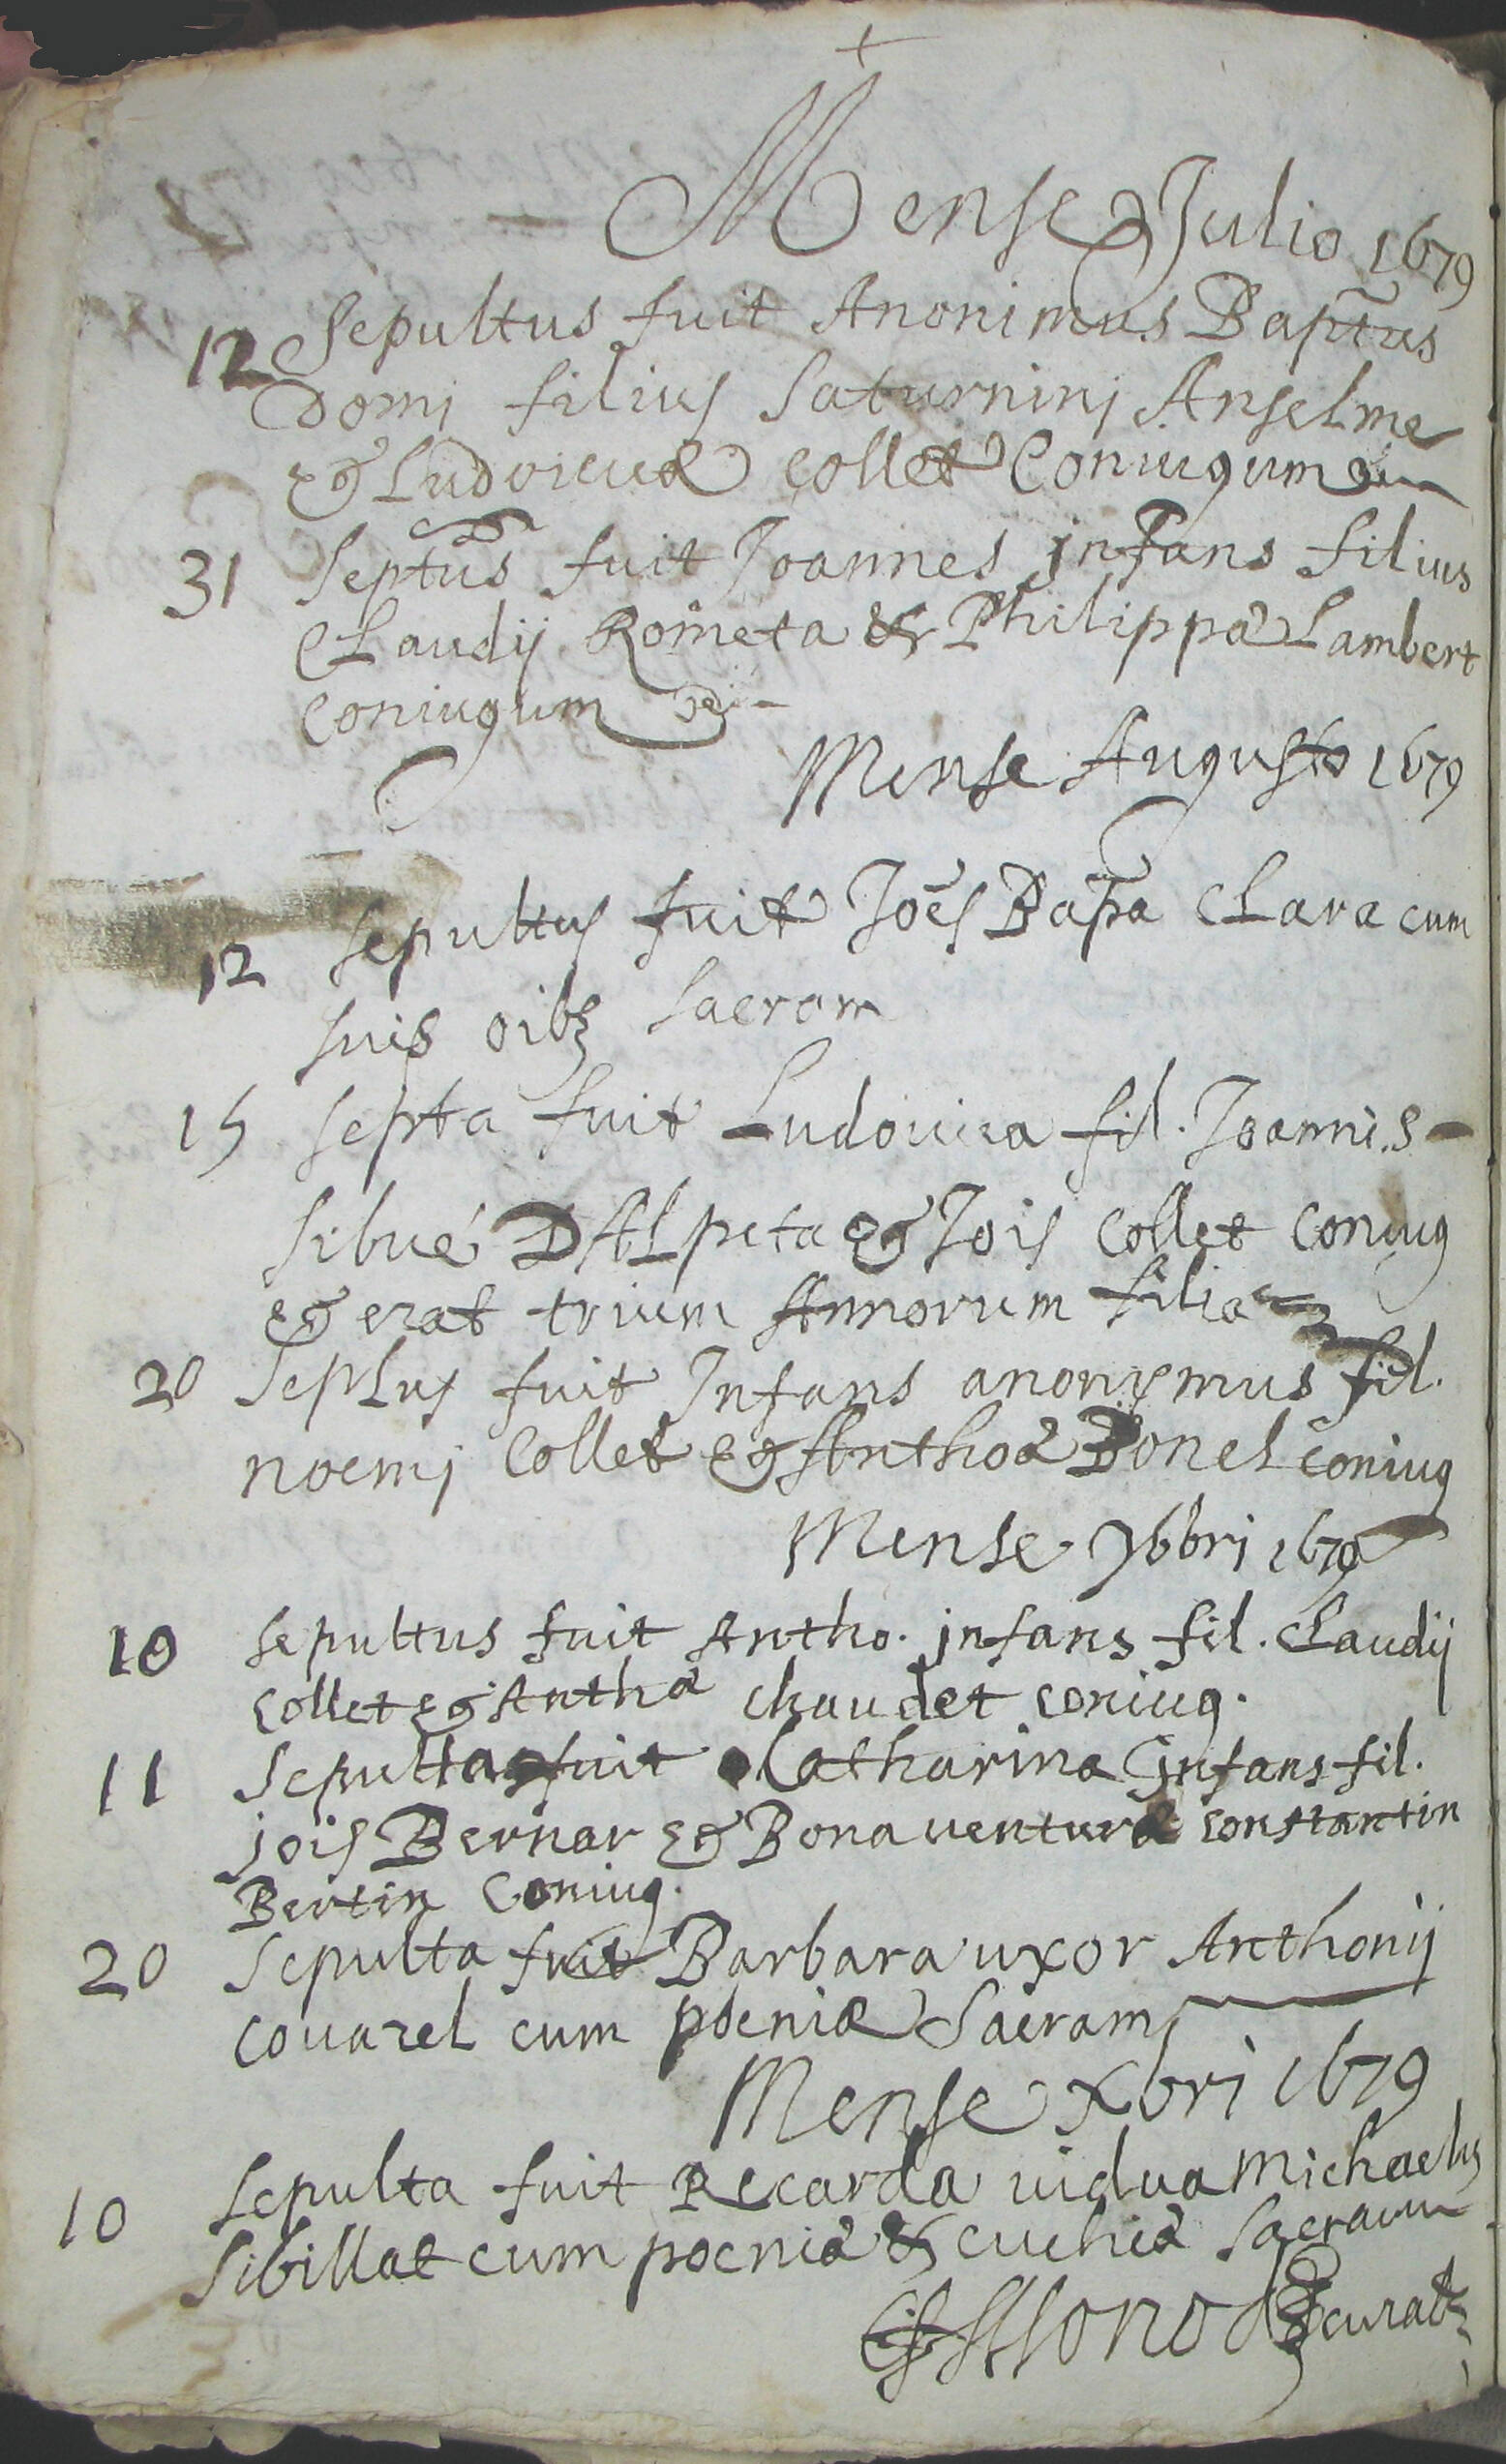 Mense Julio 1679
12 Sepultus fuit Anonimus Baptus
domj filius Saturninj Anselme
et Ludovicæ Collet Coniugum
31 Septus fuit Joannes jnfans filius
Claudij Rometa & Philippæ Lambert
coniugum
Mense Augusto 1679
12 Sepultus fuit Joēs Bapta Clara cum
suis oibȝ Sacram
15 Septa fuit Ludovica fil. Joannis
Sibué D'Alpeta et Jois Collet coniug
et erat trium Annorum filia
20 Septus fuit Infans anonymus fil.
noemj Collet et Anthoæ Bonel coniug
Mense 9bbri 1679
10 Sepultus fuit Antho. jnfans fil. Claudij
Collet et Anthæ chaudet coniug.
11 Sepulta fuit Catharina Jnfans fil.
jois Bernar et Bonaventuræ constantin
Bertin coniug.
20 Sepulta fuit Barbara uxor Anthonij
Covarel cum pœniæ Sacram
Mense Xbri 1679
10 Sepulta fuit Recarda vidua Michaelis
Sibillat cum pœniæ & euchiæ Sacram
curat